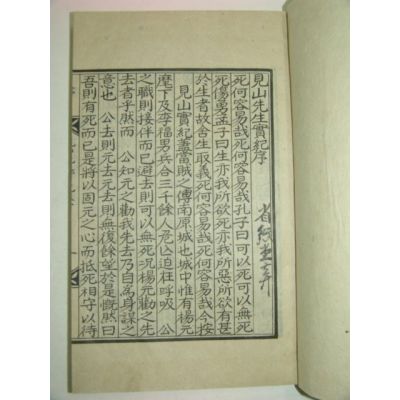 見山先生實紀序
死何容易哉死何容易哉孔子曰可以死可以無死
死傷勇孟子曰生亦我所欲死亦我所惡所欲有甚
於生者故舍生取義死何容易哉死何容易哉今按
見山實紀畫當賊之傳南原城也城中惟有楊元
麾下及李福男兵合三千餘人危急迫在呼吸 公
之職則接伴而已避去則可以無死況楊元勸之先
去者乎然而 公知元之勸我先去乃自爲身謀之
意也 公去則元去元去則無復餘望於是慨然曰
吾則有死而已是將以固元之心而抵死相守以待